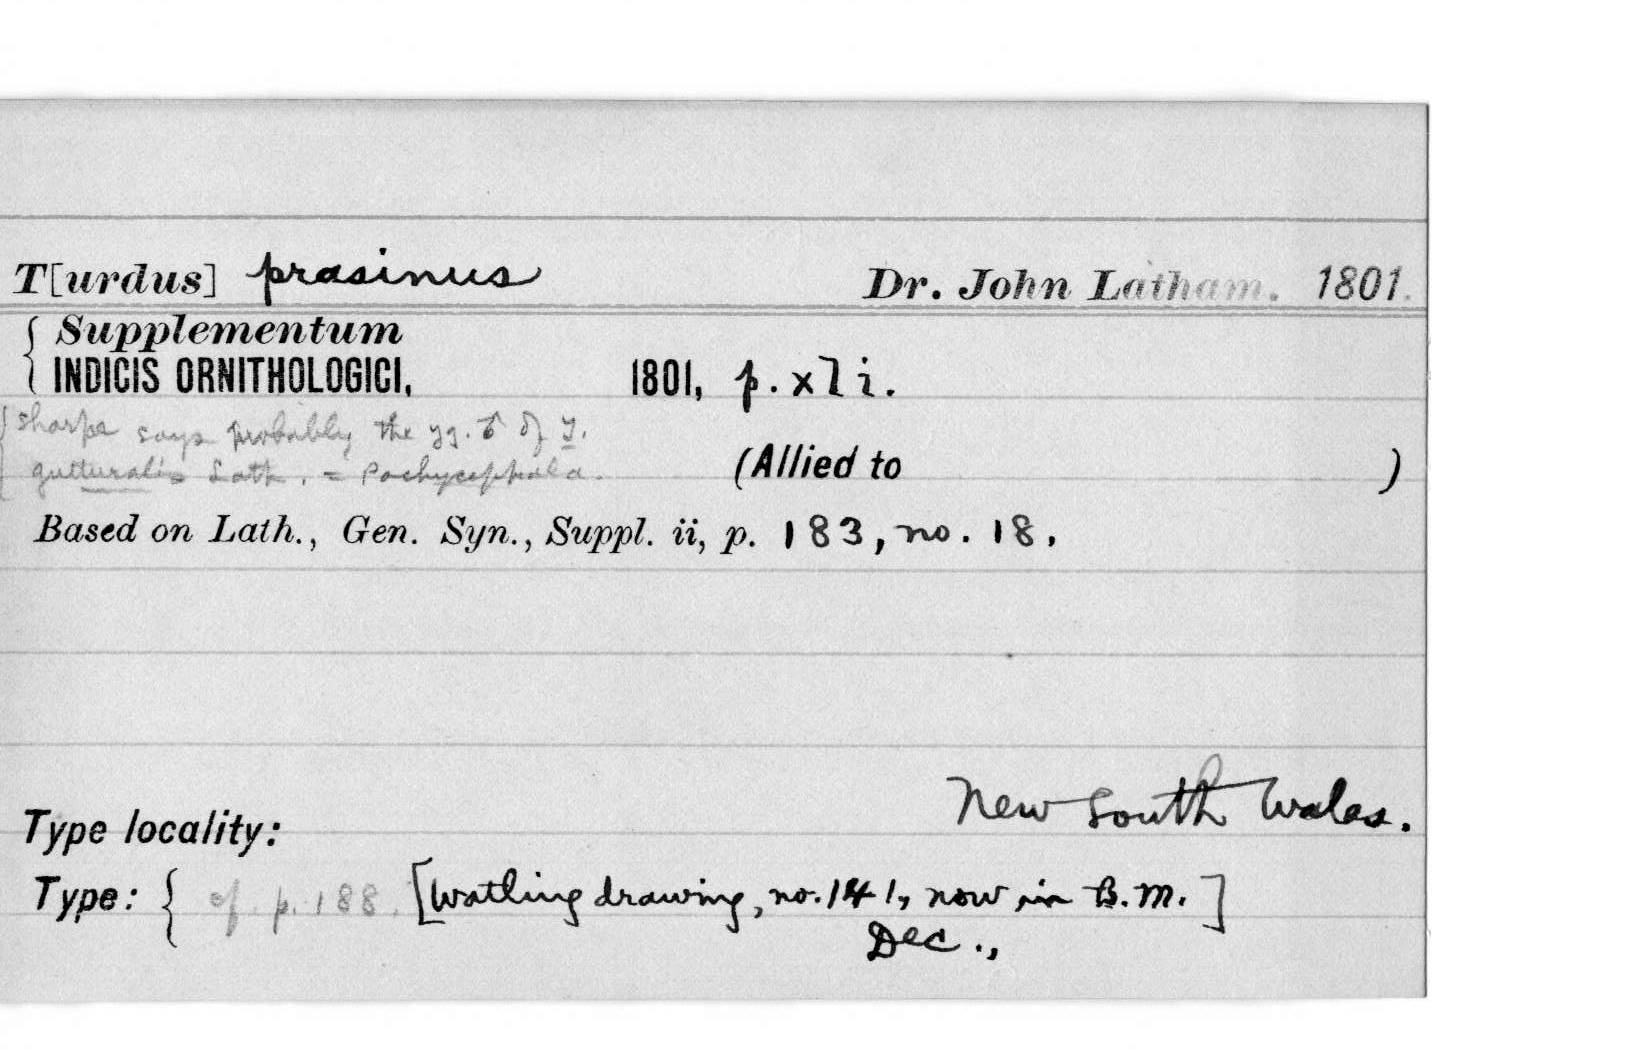 T[urdus] prasinus Dr. John Latham. 1801.
{ Supplementum
INDICIS ORNITHOLOGICI, 1801, p. xli.
{ Sharpe says probably the yg. ♂ of T.
gutturalis Lath. = Pachycephala. (Allied to )
Based on Lath., Gen. Syn., Suppl. ii, p. 183, no. 18.
Type locality: New South Wales.
Type: { cf. p. 188. [Watling drawing, no. 141, now in B.M.]
Dec.,